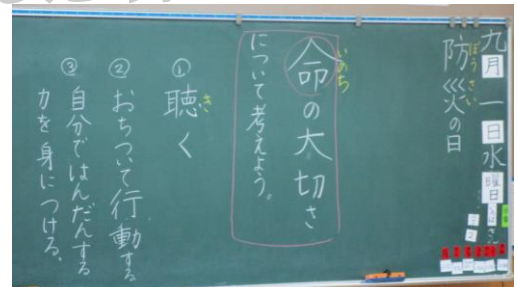 九月一日水曜日
防災の日
ぼうさい
命の大切さ
いのち
について考えよう。
① 聴く
き
② おちついて行動する
③ 自分ではんだんする
力を身につける、